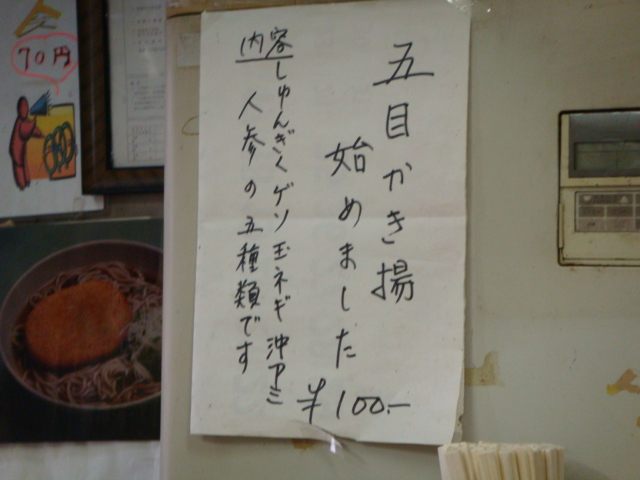 五目かき揚
始めました
¥100.-
内容しゅんぎくゲソ玉ネギ沖アミ
人参の五種類です
70円